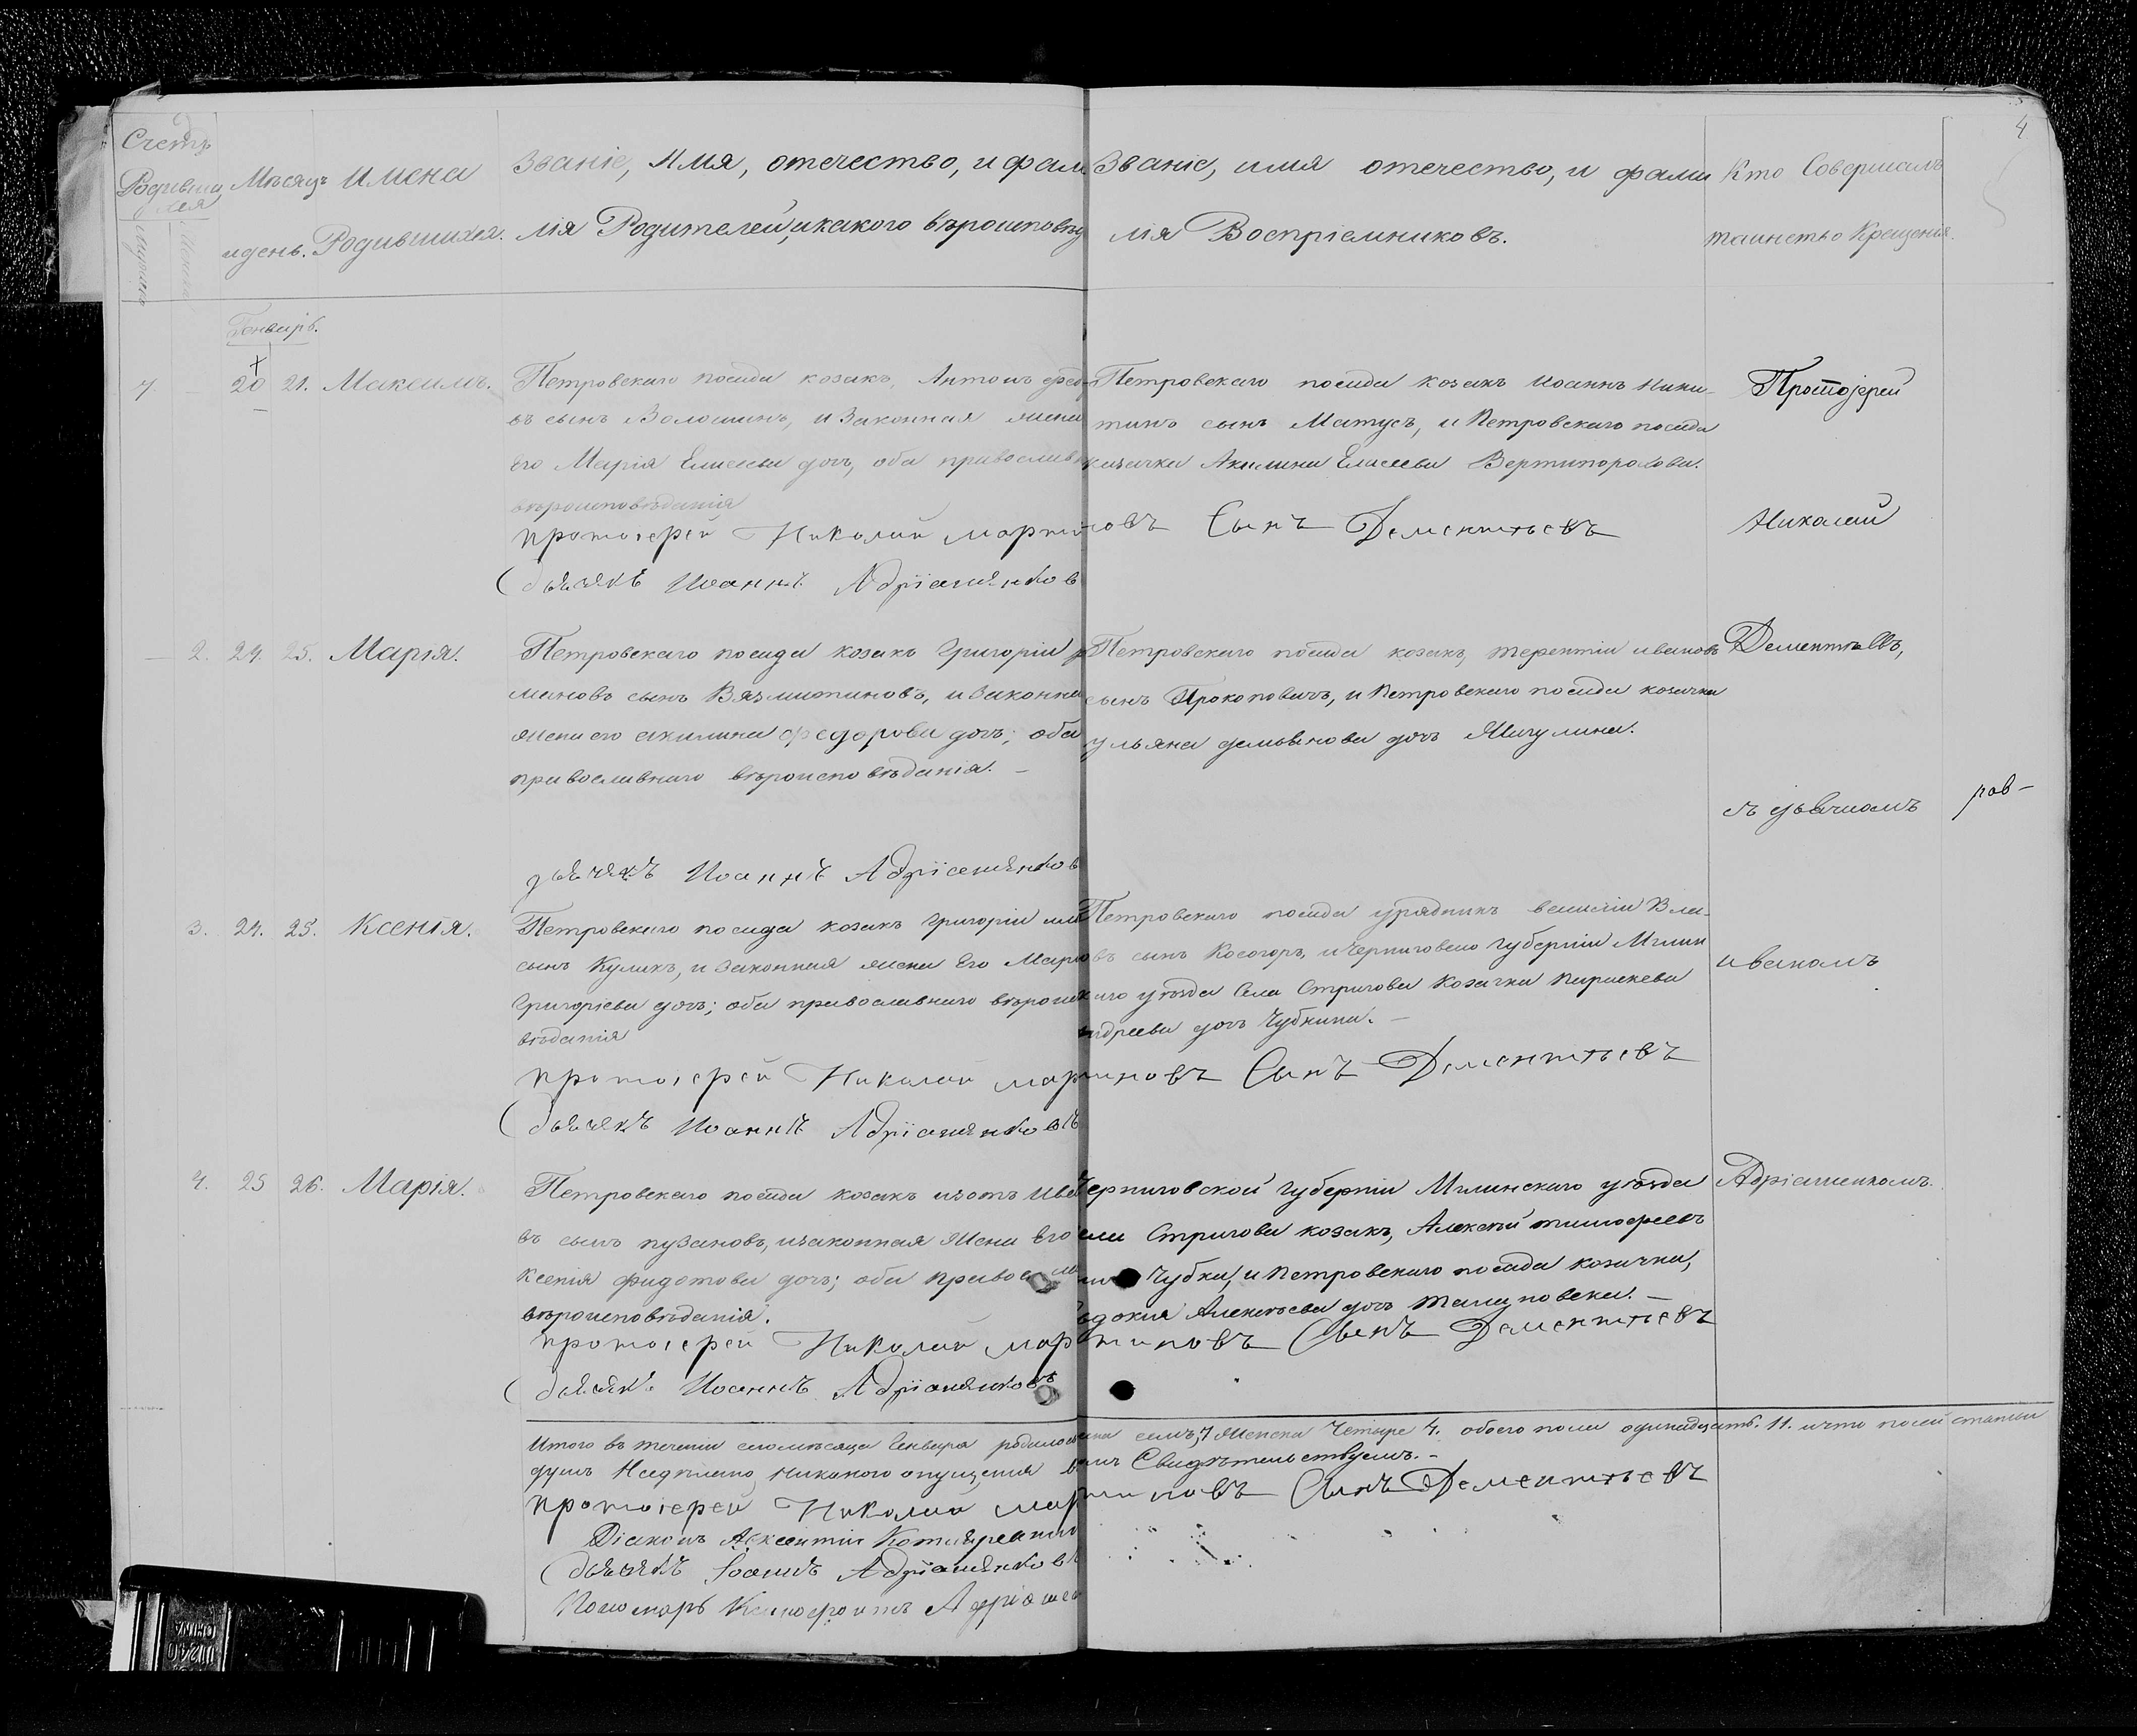 4
Счетъ
Родивши
хся
Мѣсяцъ
и день.
Имена
Родившихся.
Званіе, Имя, отечество, и фами
лія Родителей, и какого вѣроисповѣд
Званіе, имя отечество, и фами
лія Воспріемниковъ.
Кто Совершалъ
таинство Крещенія.
Генварь.
7. 20 21. Максимъ.
Петровскаго посада козакъ, Антонъ
въ сынъ Волошинъ, и Законная жена
Его Марія Елисеева дочь, оба православн
вѣроисповѣданія
Петровскаго посада козакъ Иоаннъ Ники-
тинъ сынъ Матусъ, и Петровскаго посада
козачка Акилина Елисеева Вертипорохова.
Протоіерей
Николай
протоіерей Николай Мартиновъ Сынъ Дементьевъ
дьячокъ Иоаннъ Адріяшенков
2. 24. 25. Марія.
Петровскаго посада козакъ Григорій
мановъ сынъ Вязмитиновъ, и Законна
жена его акилина федорова дочь; оба
православнаго вѣроисповѣданія. -
Петровскаго посада козакъ, терентій ивановъ
сынъ Прокоповичъ, и Петровскаго посада козачка
ульяна демьянова дочь Мигулина.
Дементьевъ,
съ дьячкомъ
дьячокъ Иоаннъ Адріяшенков
3. 24. 25. Ксенія.
Петровскаго посада козакъ Григорій
сынъ Куликъ, и Законная жена Его Марія
Григоріева дочь; оба православнаго вѣроиспо
вѣданія
Петровскаго посада урядникъ василій Вла-
въ сынъ Косогоръ, и Черниговской губерніи Мглин
каго уѣзда Села Стригова Козачка параскева
андреева дочь Чубкина. -
иваномъ
протоіерей Николай Мартиновъ Сынъ Дементьевъ
дьячокъ Иоаннъ Адріяшенковъ
4. 25 26. Марія.
Петровскаго посада козакъ изотъ Ива
въ сынъ пузановъ, изаконная жена Его
Ксенія федотова дочь; оба православн
вѣроисповѣданія.
Черниговской губерніи Мглинскаго уѣзда
Стригова козакъ, Алексѣй тимофеевъ
Чубка, и Петровскаго посада козачка,
Алексѣева дочь
Адріяшенкомъ.
протоіерей Николай Мартиновъ Сынъ Дементьевъ
дьячокъ Иоаннъ Адріяшенковъ
Итого въ теченіи сегомѣсяца Генваря родилось семъ, 7 Женска Четыре 4. обоего пола одинадцать. 11. ичто посей статьи
душъ Никакого опущенія Свидѣтельствуемъ. -
протоіерей Николай Мартиновъ Сынъ Дементьевъ
Діаконъ Авксентій
дьячокъ Іоаннъ Адріяшенковъ
Пономарь Ксенофонтъ Адріяшен